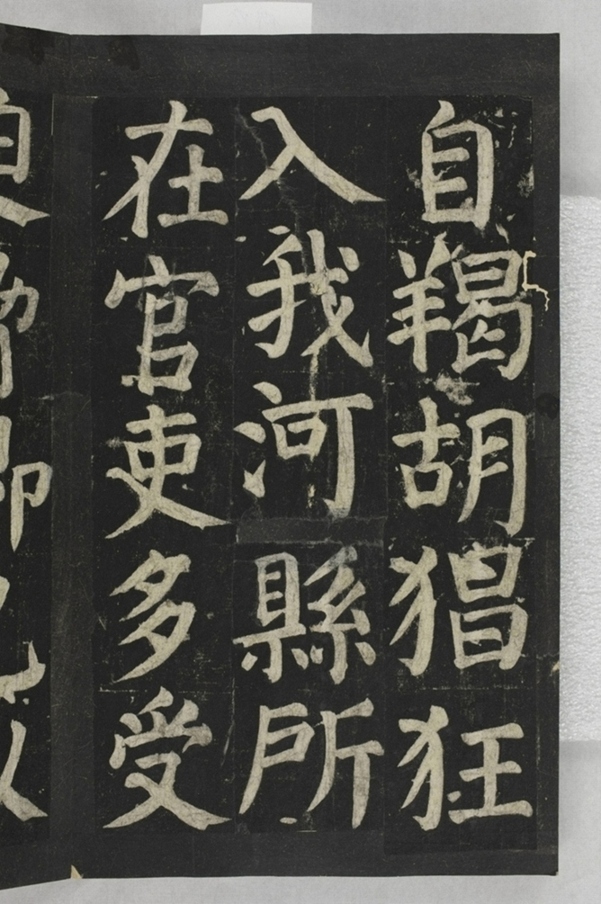 自羯胡猖狂
入我河縣所
在官吏多受